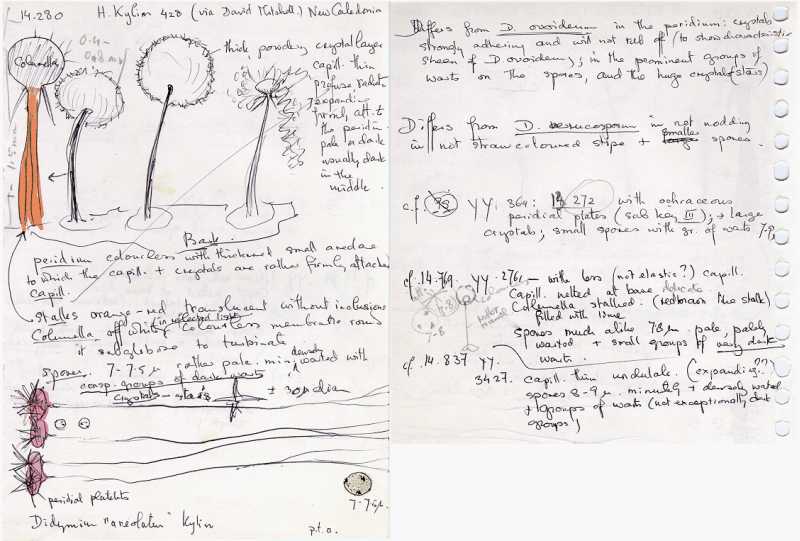 14.280 H. Kylin 428 (via David Mitchell) New Caledonia
Columella
0.4-
0.8 mm
thick, powdery crystal layer
capill. thin
profuse
expanding
firmly att. t
the peridium
pale or dark
usually dark
in the
middle.
Back
peridium colourless with thickened small areolae
to which the capill. + crystals are rather firmly attached
Capill.
stalks orange-red translucent without inclusions
in reflected light
Columella off white, colourless membr.
subglobose to turbinate
densely
spores 7-7.5 µ rather pale. min. warted with
consp. groups of dark warts
crystals - stars ± 30 µ diam
peridial platelets
7-7.5µ
Didymium "areolatum" Kylin
p.t.o.
Differs from D. ovoideum in the peridium: crystals
strongly adhering and will not rub of (to show characteristic
sheen of D. ovoideum); in the prominent groups of
warts on the spores, and the huge crystals (stars)
Differs from D. verrucosporum in not nodding
in not straw coloured stipe + smaller spores.
c.f. YY. 364: 272 with ochraceous
peridial plates (sub key III); + large
crystals; small spores with gr. of warts 7-9
cf. 14.769. YY. 276 — with loss (not elastic?) capill.
Capill. netted at base
Columella stalked. (redbrown like stalk)
filled with lime
7-8
spores much alike 78 µ. pale, palely
warted + small groups of very dark
warts.
cf. 14.837 YY.
3427. capill. thin undulate. (expanding??)
spores 8-9 µ. minutely + densely warted
+ groups of warts (not exceptionally dark
groups)